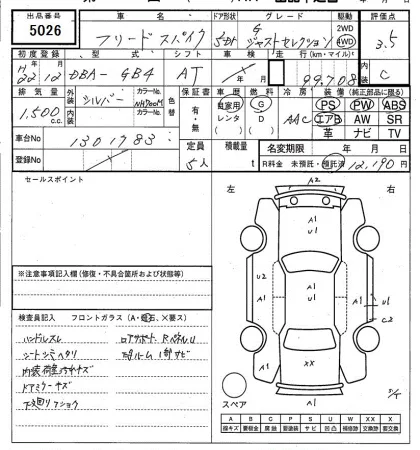 出品番号 車名 ドア形状 グレード 駆動 評価点
5026 フリード スパイク 5DH G ジャストセレクション 2WD 4WD 3.5
初度登録 型式 シフト 車検 走行(km・マイル) 内装
H22年12月 DBA-GB4 AT 年 月 99,708 C
排気量 外装 シルバー カラーNo. NH700M 色替 保証書 車歴 燃料 冷房 装備(純正部品に限る)
1,500 c.c. 内装 カラーNo. 有・無 自家用 レンタ ( ) G D ( ) AAC PS PW ABS
エアB AW SR
革 ナビ TV
車台No 1301783
定員 積載量 名変期限 年 月 日
登録No 5人 t R料金 未預託・預託済 12,190円
セールスポイント 左 右
A2
A1
U1
A1
U2
A1
A1
U1
C2
A1
XX
A1
A1
スペア
※注意事項記入欄(修復・不具合箇所および状態等)
検査員記入 フロントガラス(A・飛石、×要ス)
ハンドルスレ
シートシミヘタリ
内装荷室内キズ
ドアミラーキズ
下廻りフショク
A B C P S U W X XX
線キズ 要板金 腐蝕 要塗装 サビ 凹凸 補修跡 要交換 交換跡